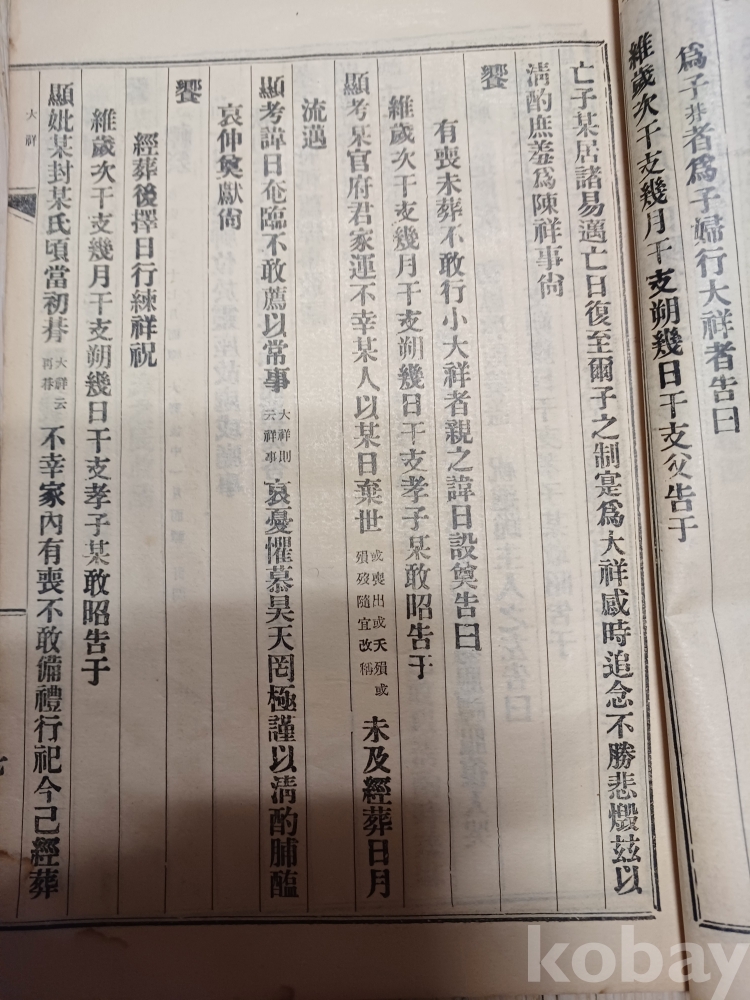 爲子非者爲子婦行大祥者告曰
維歲次干支幾月干支朔幾日干支父告于
亡子某居諸易邁亡日復至爾子之制寔爲大祥感時追念不勝悲燬玆以
淸酌庶羞爲陳祥事尙
饗
有喪未葬不敢行小大祥者親之諱日設奠告曰
維歲次干支幾月干支朔幾日干支孝子某敢昭告于
顯考某官府君家運不幸某人以某日棄世 或喪出或夭殞或殞歿隨宜改稱 未及經葬日月
流邁
顯考諱日奄臨不敢薦以常事 大祥則云祥事 哀憂懼慕昊天罔極謹以淸酌脯醢
哀仲奠獻尙
饗
經葬後擇日行練祥祝
維歲次干支幾月干支朔幾日干支孝子某敢昭告于
顯妣某封某氏頃當初朞 大祥云再朞 不幸家內有喪不敢備禮行祀今己經葬
大祥
kobay